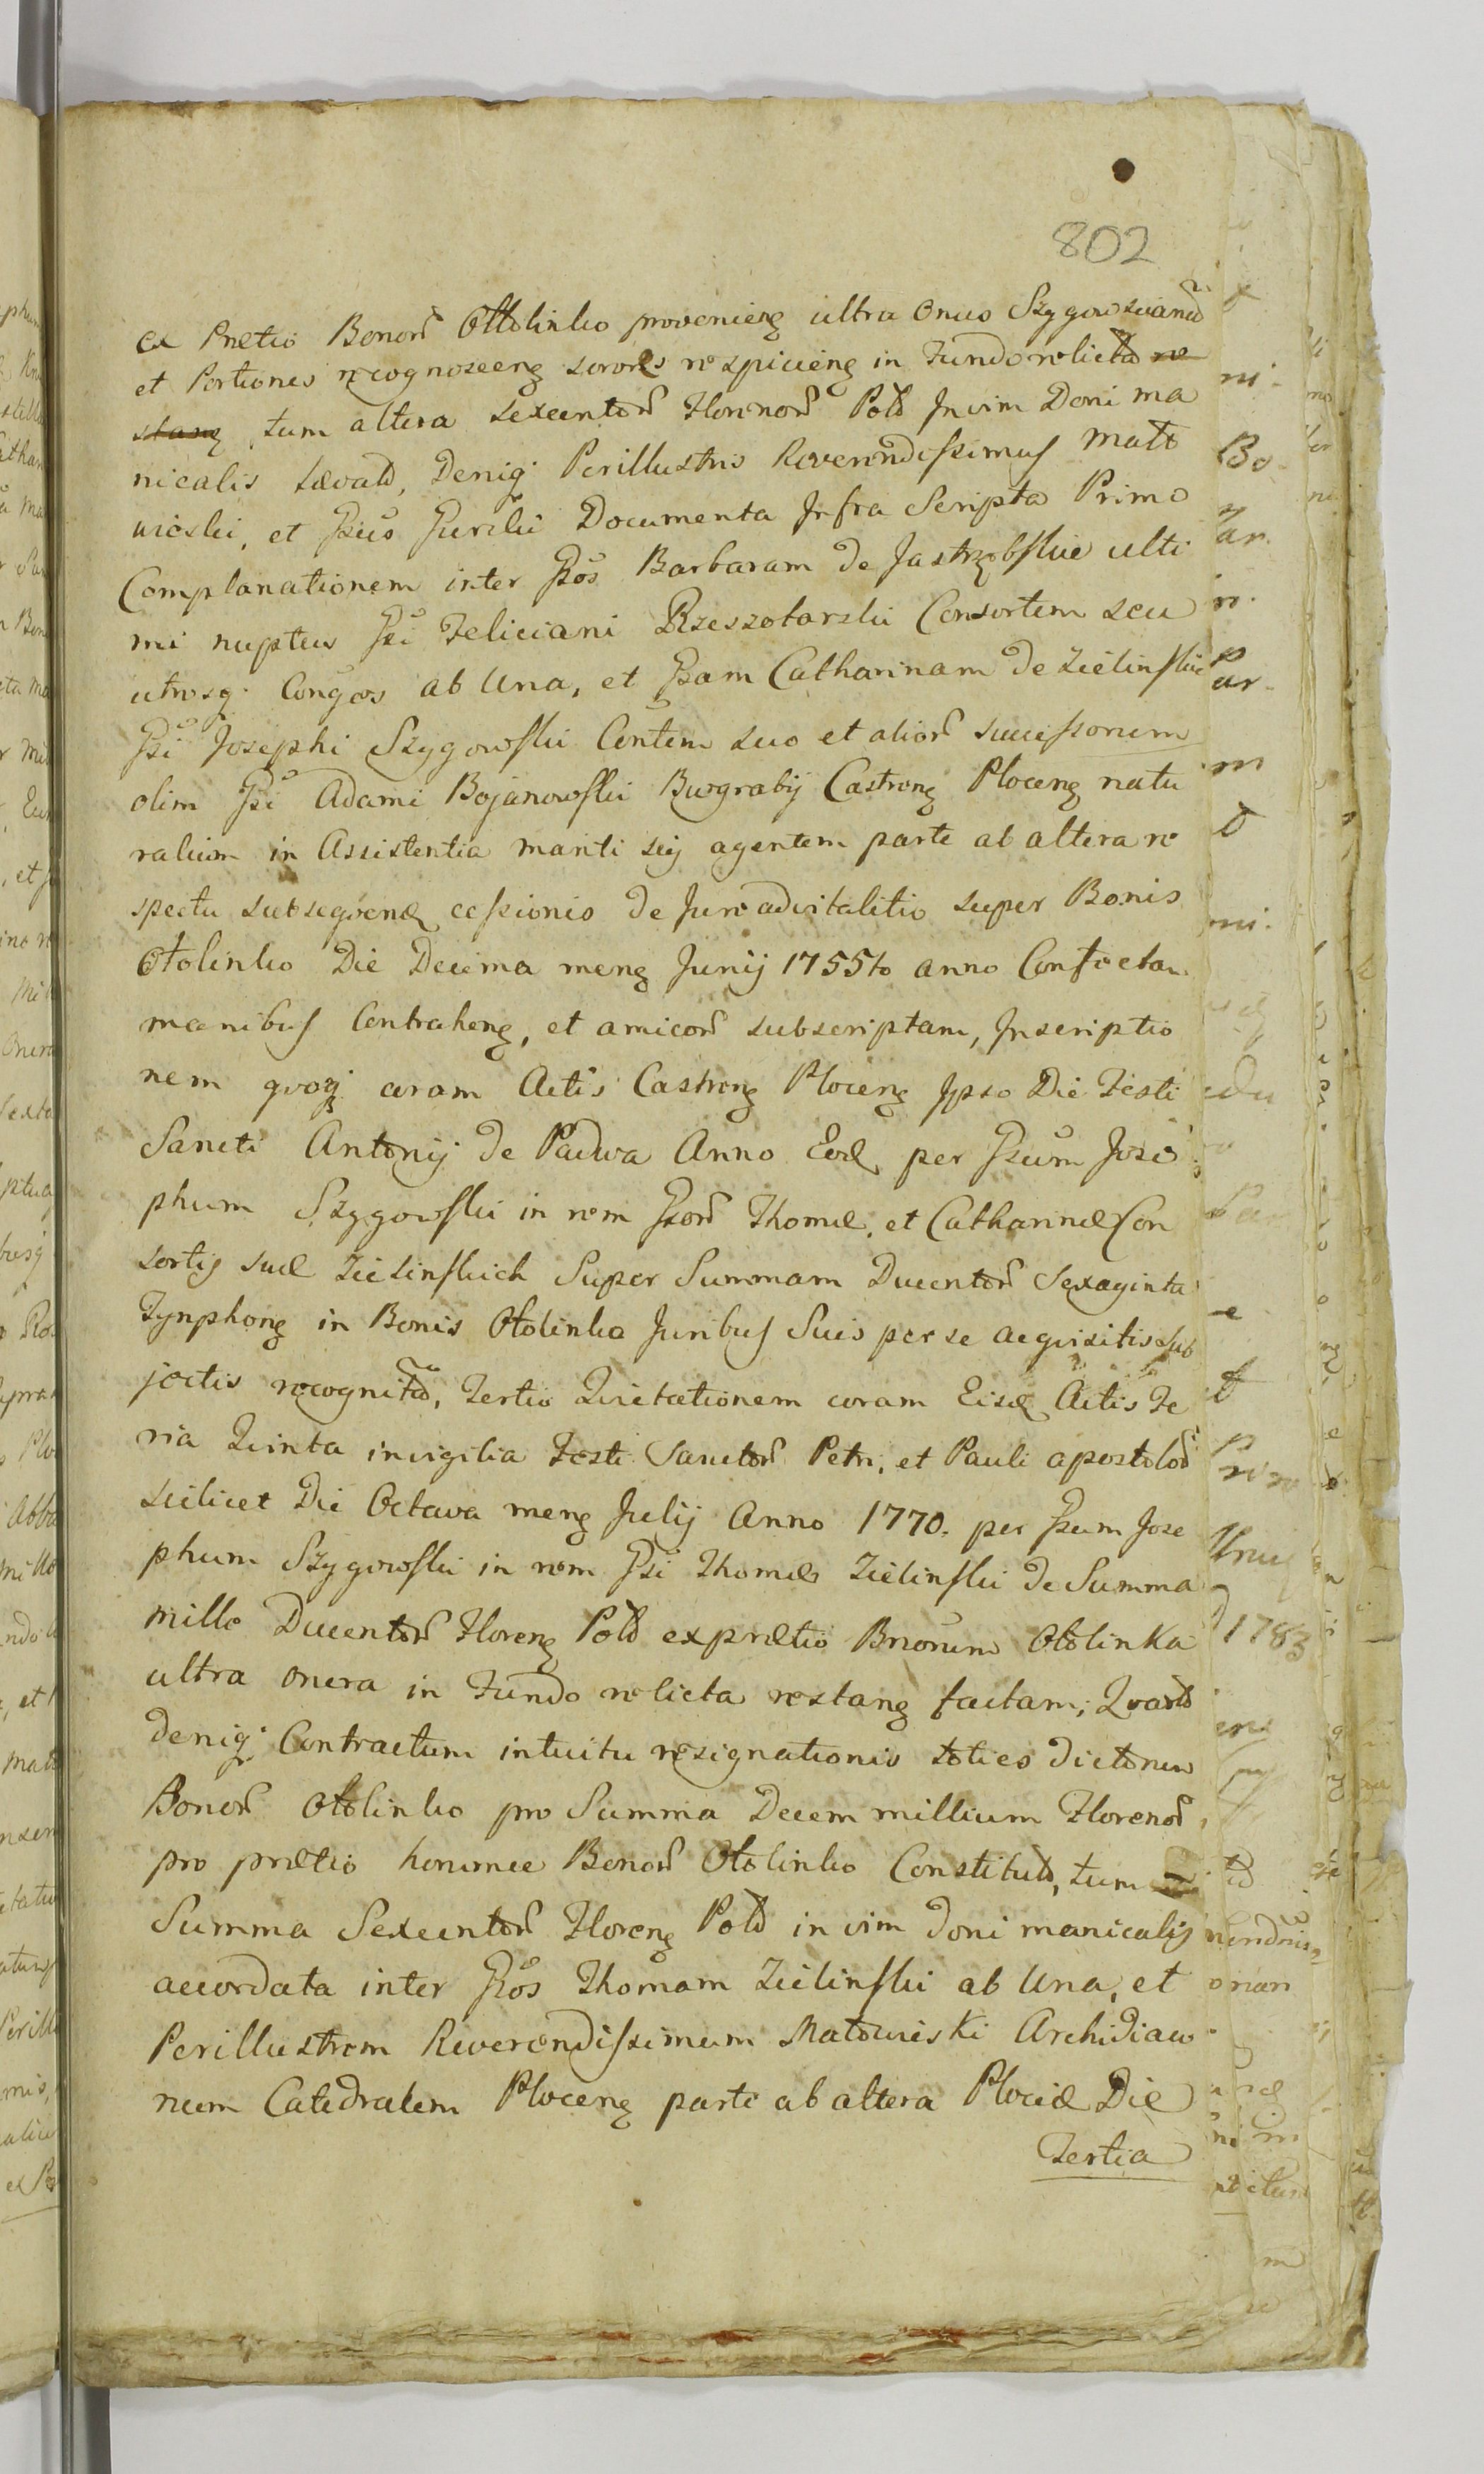 802
ex Prætio Bonorũ Ottolinko provenieng ultra onus Szygowsciand
et Portiones recognosceng sorores respicieng in Fundo relictd re
stang tum altera Sexcentorũ Florenorũ Pold Invim Doni ma
nicalis Levatd, Deniq Perillustris Reverendissimus Mato
wieski, et Gsus Gurski Documenta Infra Scripta Primo
Complanationem inter Gsos Barbaram de Jastrzębskie ulti
mi nuptus Gsi Feliciani Rzeszotarski Consortem seu
utrosq Congoes ab Una, et Gsam Catharinam de Zielinskie
Gsi Josephi Szygowski Contem suo et aliorũ successorum
olim Gsi Adami Bojanowski Burgrabij Castreng Ploceng natu
ralium in Assistentia mariti sui agentem parte ab altera re
spectu subseqvenẽ cessionis de Jure advitalitio super Bonis
Otolinko Die Decima meng Junij 1755to anno Confectam
manibus Contraheng, et amicorũ subscriptam, Inscriptio
nem qvoq coram Actis Castreng Ploceng Ipso Die Festi
Sancti Antonij de Padua Anno Eod per Gsum Jose
phum Szygowski in rem Gsorũ Thomæ, et Catharinæ Con
sortis suæ Zielinskich Super Summam Ducentorũ Sexaginta
Tynphong in Bonis Otolinko Juribus Suis per se acqvisitis sub
jectis recognitd, Tertio Qvietationem coram Eisd Actis Fe
ria Qvinta invigilia Festi Sanctorũ Petri, et Pauli apostolorũ
scilicet Die Octava meng Julij Anno 1770. per Gsum Jose
phum Szygowski in rem Gsi Thomæ Zielinski de Summa
mille Ducentorũ Floreng Pold ex prætio Bnorum Otolinka
ultra onera in Fundo relicta restang factam, Qvarto
deniq Contractum intuitu resignationis toties dictorum
Bonorũ Otolinko pro Summa Decem millium Florenorũ
pro prætio horumce Bonorũ Otolinko Constitutd, tum
Summa Sexcentorũ Floreng Pold in vim doni manicalis
accordata inter Gsos Thomam Zielinski ab Una, et
Perillustrem Reverendissimum Matowieski Archidiaco
num Catedralem Ploceng parte ab altera Plociæ Die
Tertia
1783